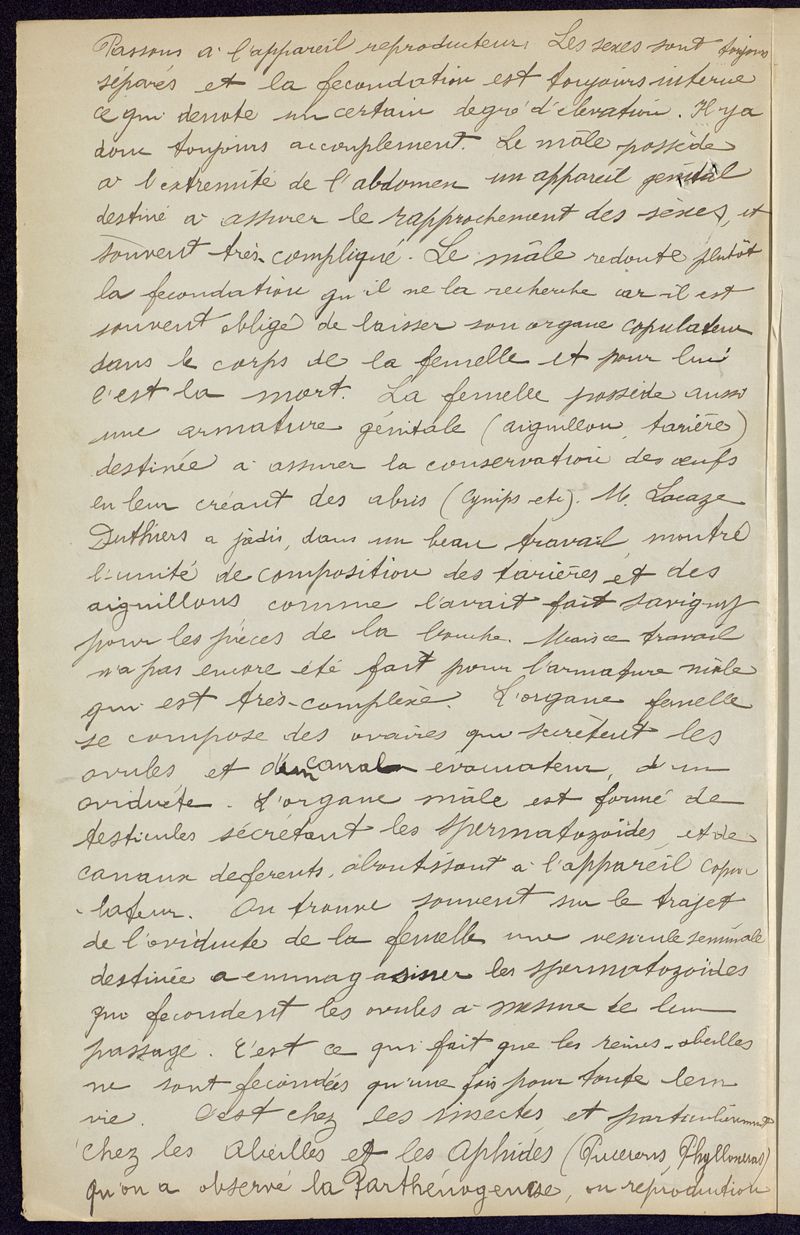 Passons à l'appareil reproducteur. Les sexes sont toujours
séparés et la fecondation est toujours interne
ce qui denote un certain degré d'élevation. Il y a
donc toujours accouplement. Le mâle possède
a l'extremité de l'abdomen un appareil génital
destiné a assurer le rapprochement des sèxes, et
souvent très-compliqué. Le mâle redoute plutôt
la fecondation qu'il ne la recherche car il est
souvent obligé de laisser son organe copulateur
dans le corps de la femelle et pour lui
c'est la mort. La femelle possède aussi
une armature génitale (aiguillon, tarière)
destinée a assurer la conservation des œufs
en leur créant des abris (Cynips etc). M. Lacaze
Duthiers a jadis, dans un beau travail montré
l'unité de composition des tarières et des
aiguillons comme l'avait fait Savigny
pour les pièces de la bouche. Mais ce travail
n'a pas encore été fait pour l'armature mâle
qui est très-complèxe. L'organe femelle
se compose des ovaires qui secrètent les
ovules et d'un canal evacuateur, d'un
oviducte. L'organe mâle est formé de
testicules sécrétant les spermatozoïdes, et de
canaux deferents, aboutissant a l'appareil copu-
-lateur. On trouve souvent sur le trajet
de l'oviducte de la femelle une vesicule seminale
destinée a emmagasiner les spermatozoïdes
qui fecondent les ovules a mesure de leur
passage. C'est ce qui fait que les reines-abeilles
ne sont fecondées qu'une fois pour toute leur
vie. C'est chez les insectes et particulièrement
chez les Abeilles et les Aphides (Pucerons Phylloxeras)
qu'on a observé la Parthénogenèse, ou reproduction